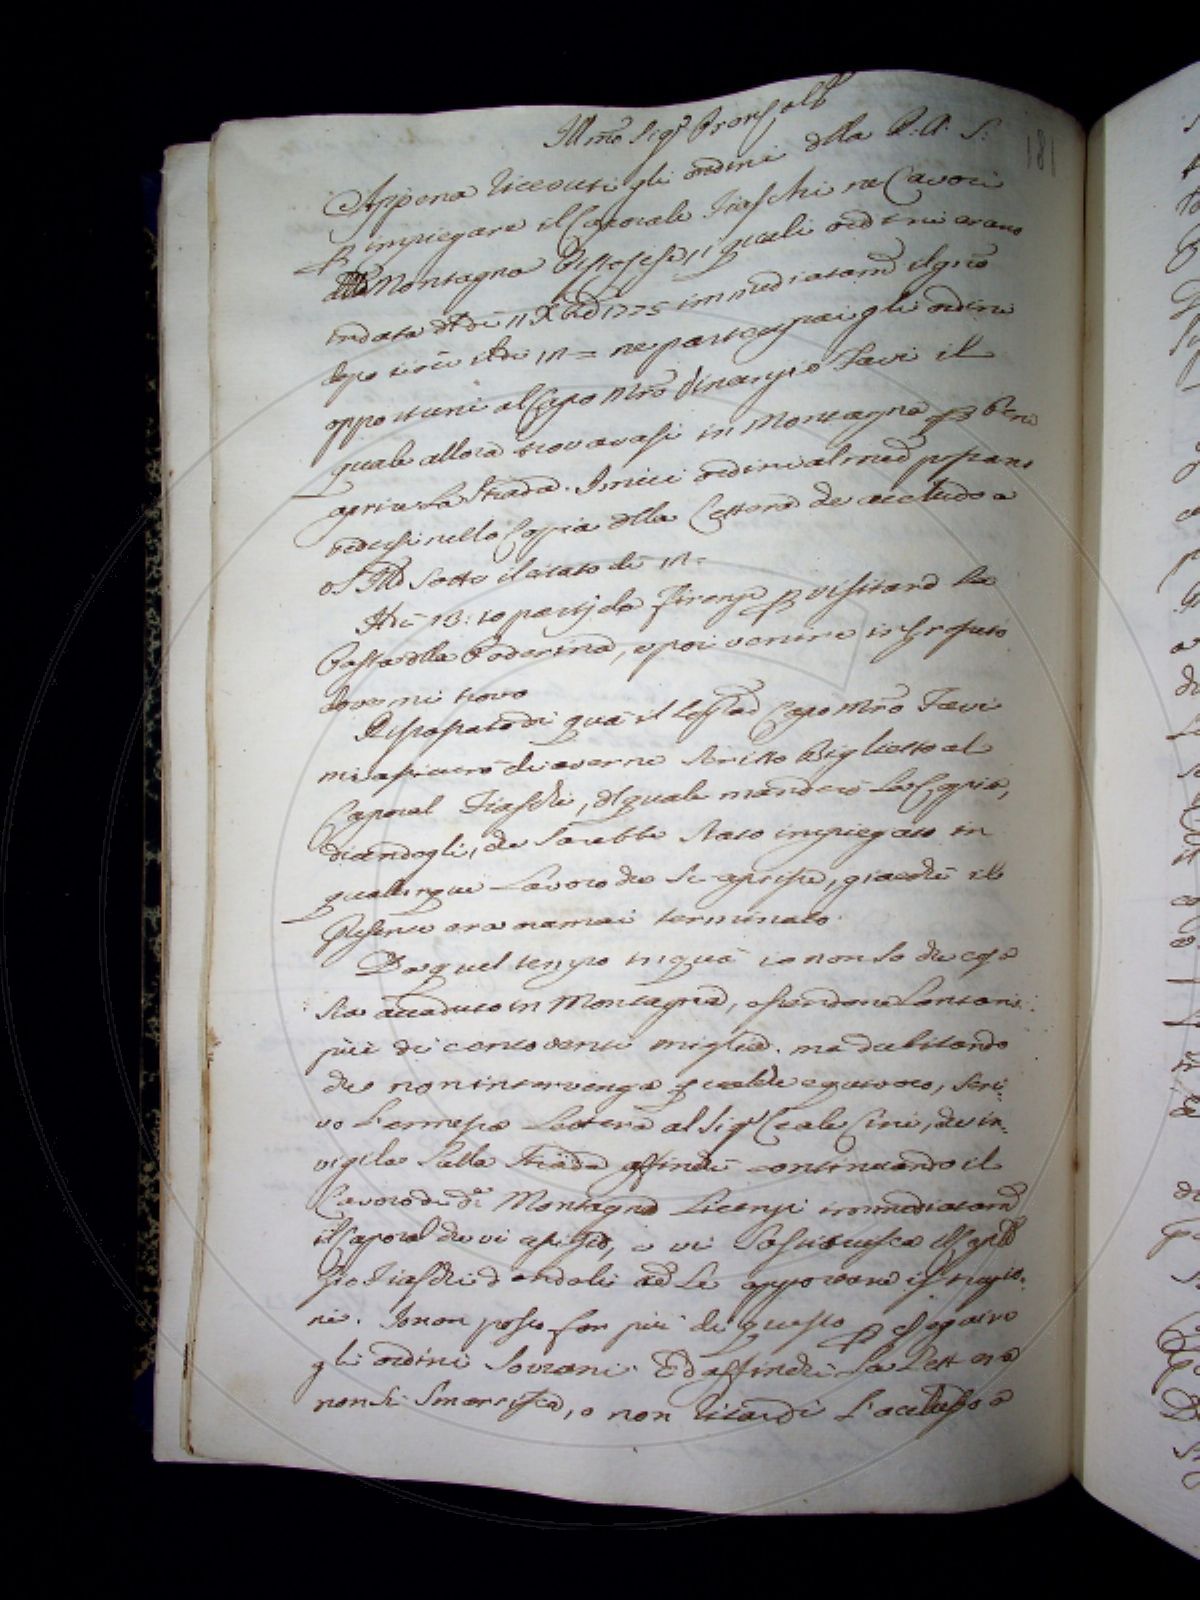 Ill.mo Sig.r Pron Col.mo
181
Appena ricevuti gli ordini della R: A: S:
p impiegare il Caporale Fiaschi ne Lavori
della Montagna Pistojese, i quali ordini erano
in data di 11 Xbre 1775 immediatam.e il gno
dopo cioè il di 12 = ne partecipai gli ordini
opportuni al Capo Mro Anargio Favi il
quale allora trovavasi in Montagna p
aprir la Strada. I miei ordini al med possano
vedersi nella Copia della Lettera che accludo a
VS Ill sotto il citato di 12 =
Il di 13: io partij da Firenze p visitare la
Posta della Poderina, e poi venire in Grosseto
dove mi trovo
Ripassato di qua il Capo Mro Favi
mi assicurò di averne scritto Biglietto al
Caporal Fiaschi, del quale manderò la Copia,
dicendogli, che sarebbe stato impiegato in
qualunque Lavoro che si aprisse, giacchè il
presente era ormai terminato.
Da quel tempo in quà io non so che cosa
sia accaduto in Montagna, essendone lontano
più di cento venti miglia. ma dubitando
che non intervenga qualche equivoco, scri-
vo l'annessa Lettera al Sig.r Cini, che in-
vigila sulla Strada affinchè continuando il
Lavoro di d.a Montagna licenzi immediatam.e
il Caporal che vi assiste, e vi sostituisca il
Fiaschi dandoli le opportune istruzio-
ni. Io non posso far più di questo p eseguire
gli ordini Sovrani. Ed affinchè la Lettera
non si smarrisca, o non ritardi l'accludo a